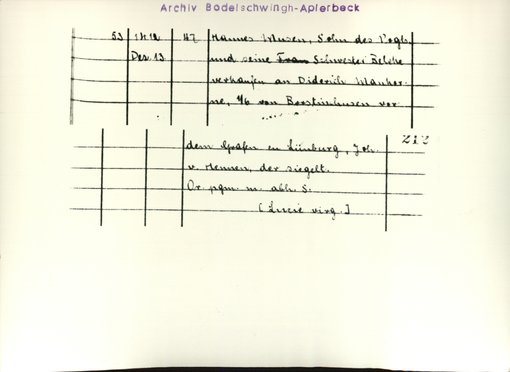 Archiv Bodelschwingh-Aplerbeck
53 1412 47 Hannes Wusen, Sohn des Vogts,
Dez. 13 und seine Frau Schwester Beleke
verkaufen an Diderich
ne, 1/6 von vor
dem Grafen zu Limburg, Joh. 212
v. Mennen, der siegelt.
Or. pgm. m. abh. S.
[Lucie virg.]